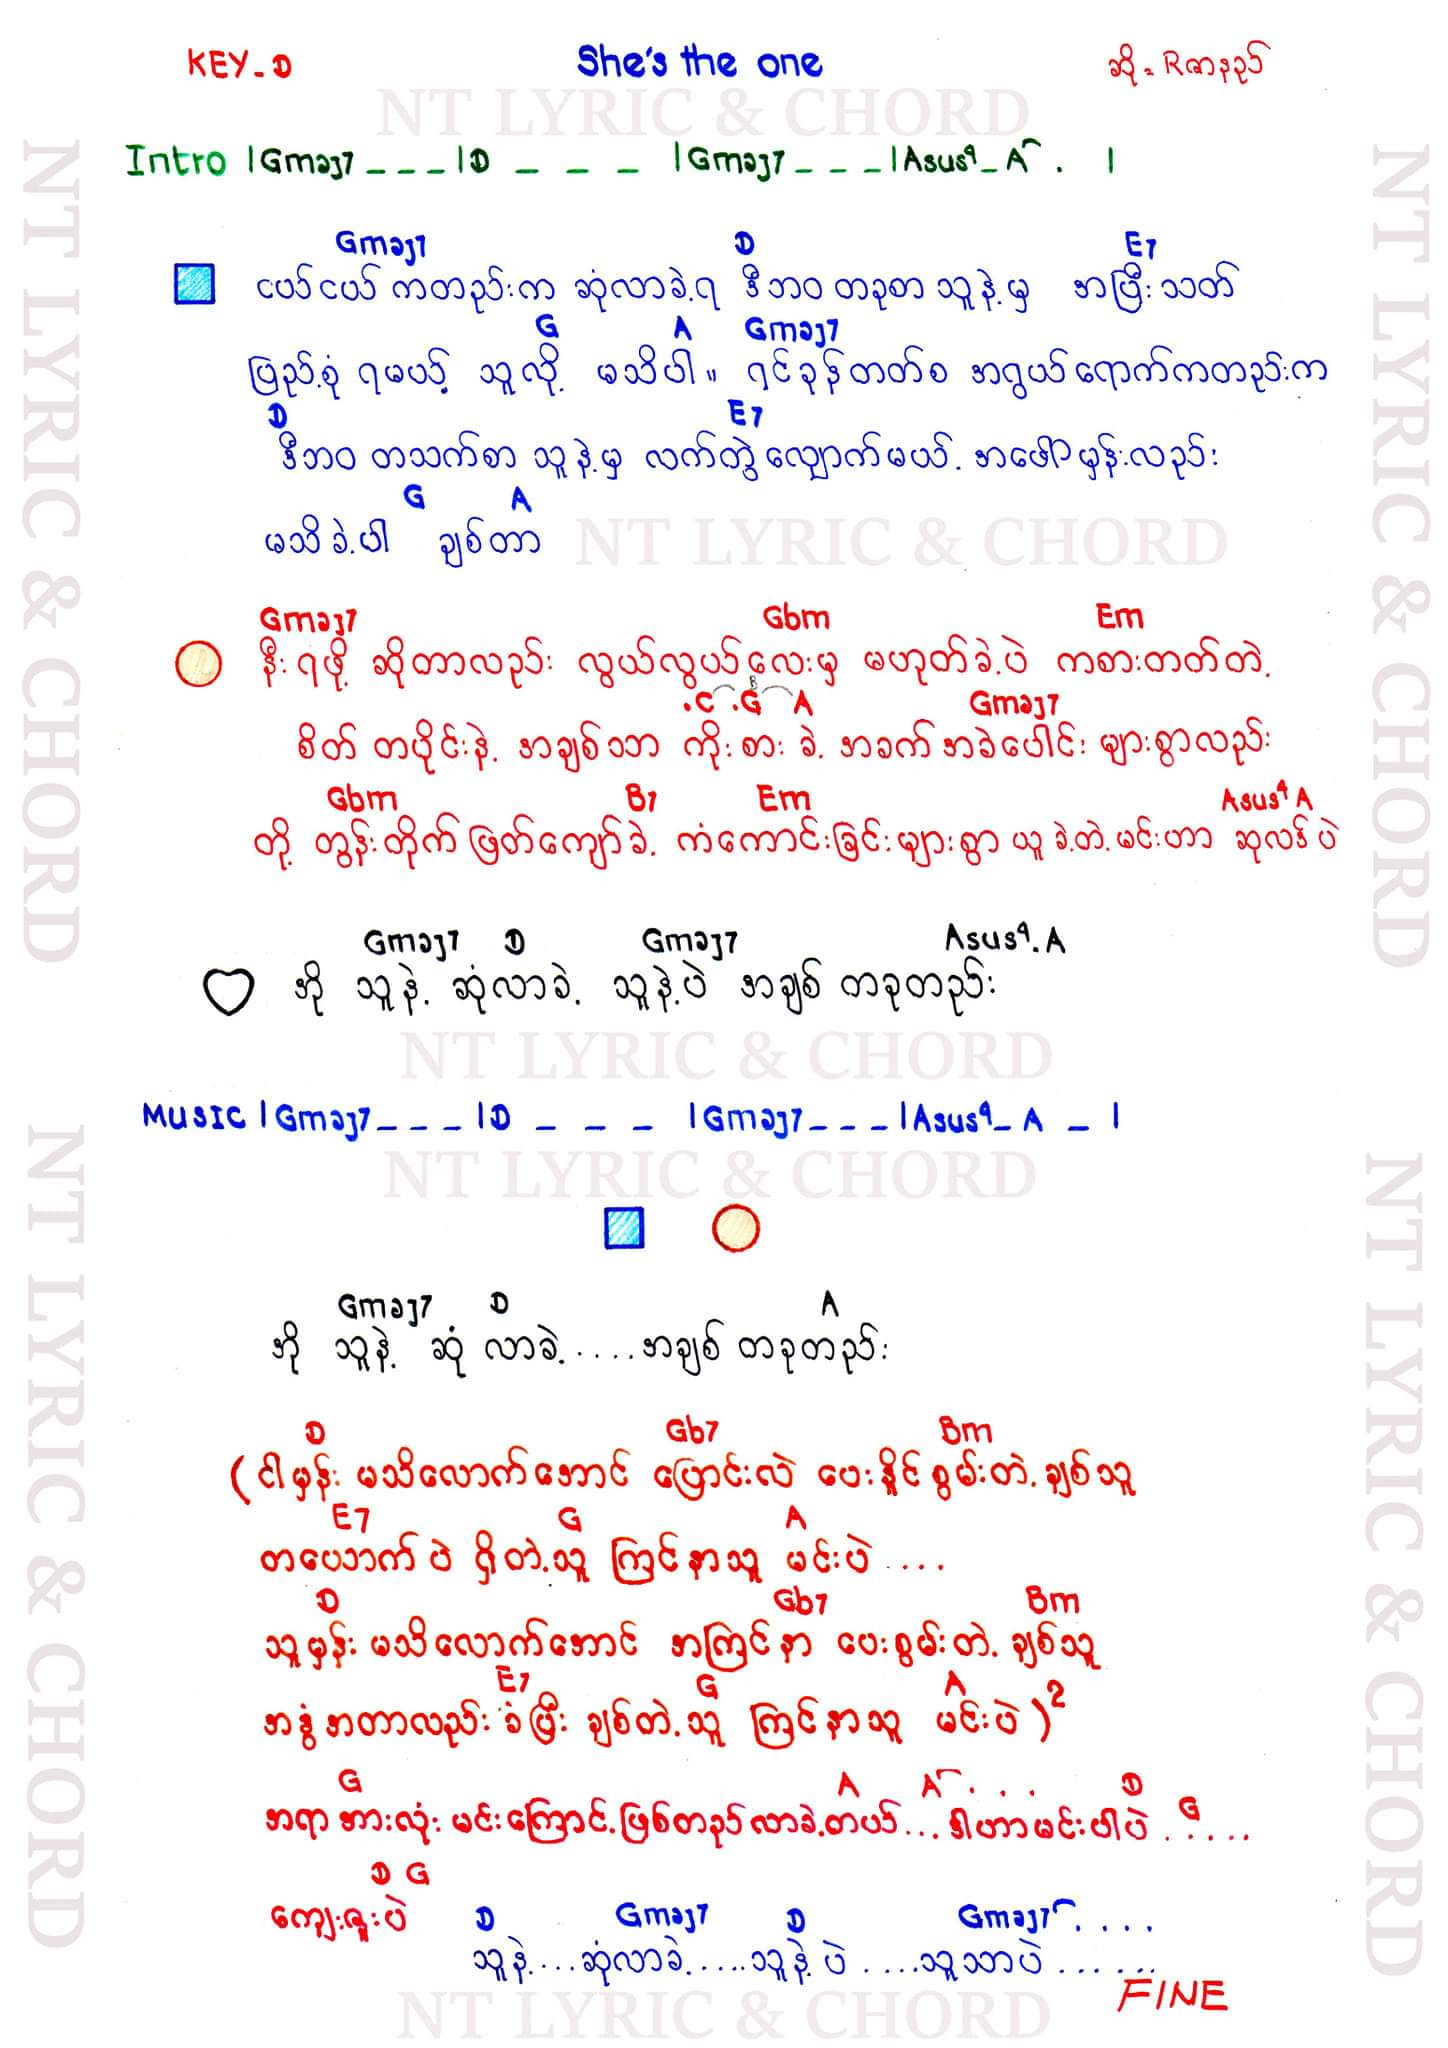 KEY-D She's the one ဆို = R ဇာနည်
NT LYRIC & CHORD
Intro |Gmaj7 _ _ _ |D _ _ _ |Gmaj7 _ _ _ |Asus4 _ A . |
Gmaj7 D E7
ငယ်ငယ် ကတည်းက ဆုံလာခဲ့ရ ဒီဘဝ တခုစာ သူနဲ့မှ အပြီးသတ်
G A Gmaj7
ပြည့်စုံ ရမယ့် သူလို့ မသိပါ။ ရင်ခုန်တတ်စ အရွယ်ရောက်ကတည်းက
D E7
ဒီဘဝ တသက်စာ သူနဲ့မှ လက်တွဲလျှောက်မယ့် အဖေါ်မှန်းလည်း
G A
မသိခဲ့ပါ ချစ်တာ
NT LYRIC & CHORD
Gmaj7 Gbm Em
နီးရဖို့ ဆိုတာလည်း လွယ်လွယ်လေးမှ မဟုတ်ခဲ့ပဲ ကစားတတ်တဲ့
.C .G A Gmaj7
စိတ် တပိုင်းနဲ့ အချစ်သာ ကိုးစား ခဲ့ အခက်အခဲပေါင်း များစွာလည်း
Gbm B7 Em Asus4 A
တို့ တွန်းတိုက် ဖြတ်ကျော်ခဲ့ ကံကောင်းခြင်းများစွာ ယူခဲ့တဲ့မင်းဟာ ဆုလဒ်ပဲ
Gmaj7 D Gmaj7 Asus4.A
အို သူနဲ့ ဆုံလာခဲ့ သူနဲ့ပဲ အချစ် တခုတည်း
NT LYRIC & CHORD
MUSIC |Gmaj7 _ _ _ |D _ _ _ |Gmaj7 _ _ _ |Asus4 _ A _ |
NT LYRIC & CHORD
Gmaj7 D A
အို သူနဲ့ ဆုံ လာခဲ့.....အချစ် တခုတည်း
D Gb7 Bm
(ငါမှန်း မသိလောက်အောင် ပြောင်းလဲ ပေးနိူင်စွမ်းတဲ့ ချစ်သူ
E7 G A
တယောက် ပဲ ရှိတဲ့သူ ကြင်နာသူ မင်းပဲ ....
D Gb7 Bm
သူမှန်း မသိလောက်အောင် အကြင်နာ ပေးစွမ်းတဲ့ ချစ်သူ
E7 G A
အနွံအတာလည်း ခံပြီး ချစ်တဲ့သူ ကြင်နာသူ မင်းပဲ )2
G A A . . . D G
အရာအားလုံး မင်းကြောင့်ဖြစ်တည်လာခဲ့တယ်... ဒါဟာမင်းပါပဲ ......
D G
ကျေးဇူးပဲ
D Gmaj7 D Gmaj7 . . . .
သူနဲ့....ဆုံလာခဲ့.....သူနဲ့ ပဲ ....သူသာပဲ .......
FINE
NT LYRIC & CHORD
NT LYRIC & CHORD
NT LYRIC & CHORD
NT LYRIC & CHORD
NT LYRIC & CHORD